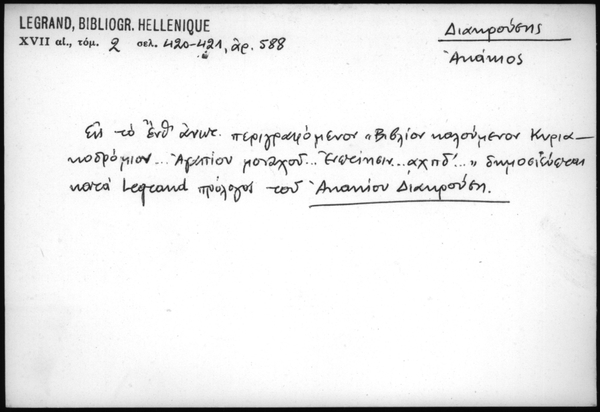 LEGRAND, BIBLIOGR. HELLENIQUE
XVII αἰ., τόμ. 2 σελ. 420-421, ἀρ. 588
Διακρούσης
Ἀκάκιος
Εἰς τὸ ἔνθ' ἀνωτ. περιγραφόμενον "Βιβλίον καλούμενον Κυρια-
κοδρόμιον... Ἀγαπίου μοναχοῦ... Ἐνετίησιν.. αχπδ'..." δημοσιεύεται
κατὰ Legrand πρόλογος τοῦ Ἀκακίου Διακρούση.